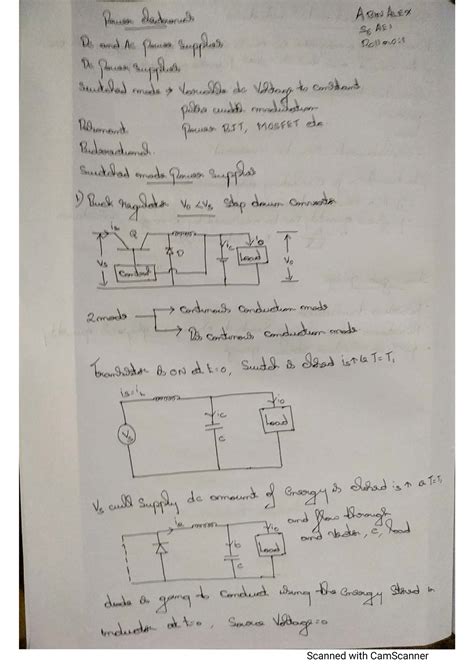 Power electronics
ABIN ALEX
S8 AEI
Roll no: 1
Dc and Ac Power Supplies
Dc Power Supplies
Switched mode → Variable dc Voltage to constant
pulse width modulation
Resonant Power BJT, MOSFET etc
Bidirectional
Switched mode Power Supplies
1) Buck Regulator Vo < Vs Step down Converter
is Q ic io
Vs D Load Vo
Control
2 mode → Continous Conduction mode
→ Dis continous conduction mode
Transistor is ON at t=0, Switch is closed is↑ T=T1
is=iL
ic io
Vs C Load
Vs will Supply dc amount of energy is closed is ↑ T=T1
and flow through
C, load
io
ic Load
C
diode is going to Conduct using the Energy Stored in
inductor at t=0, Source Voltage=0
Scanned with CamScanner